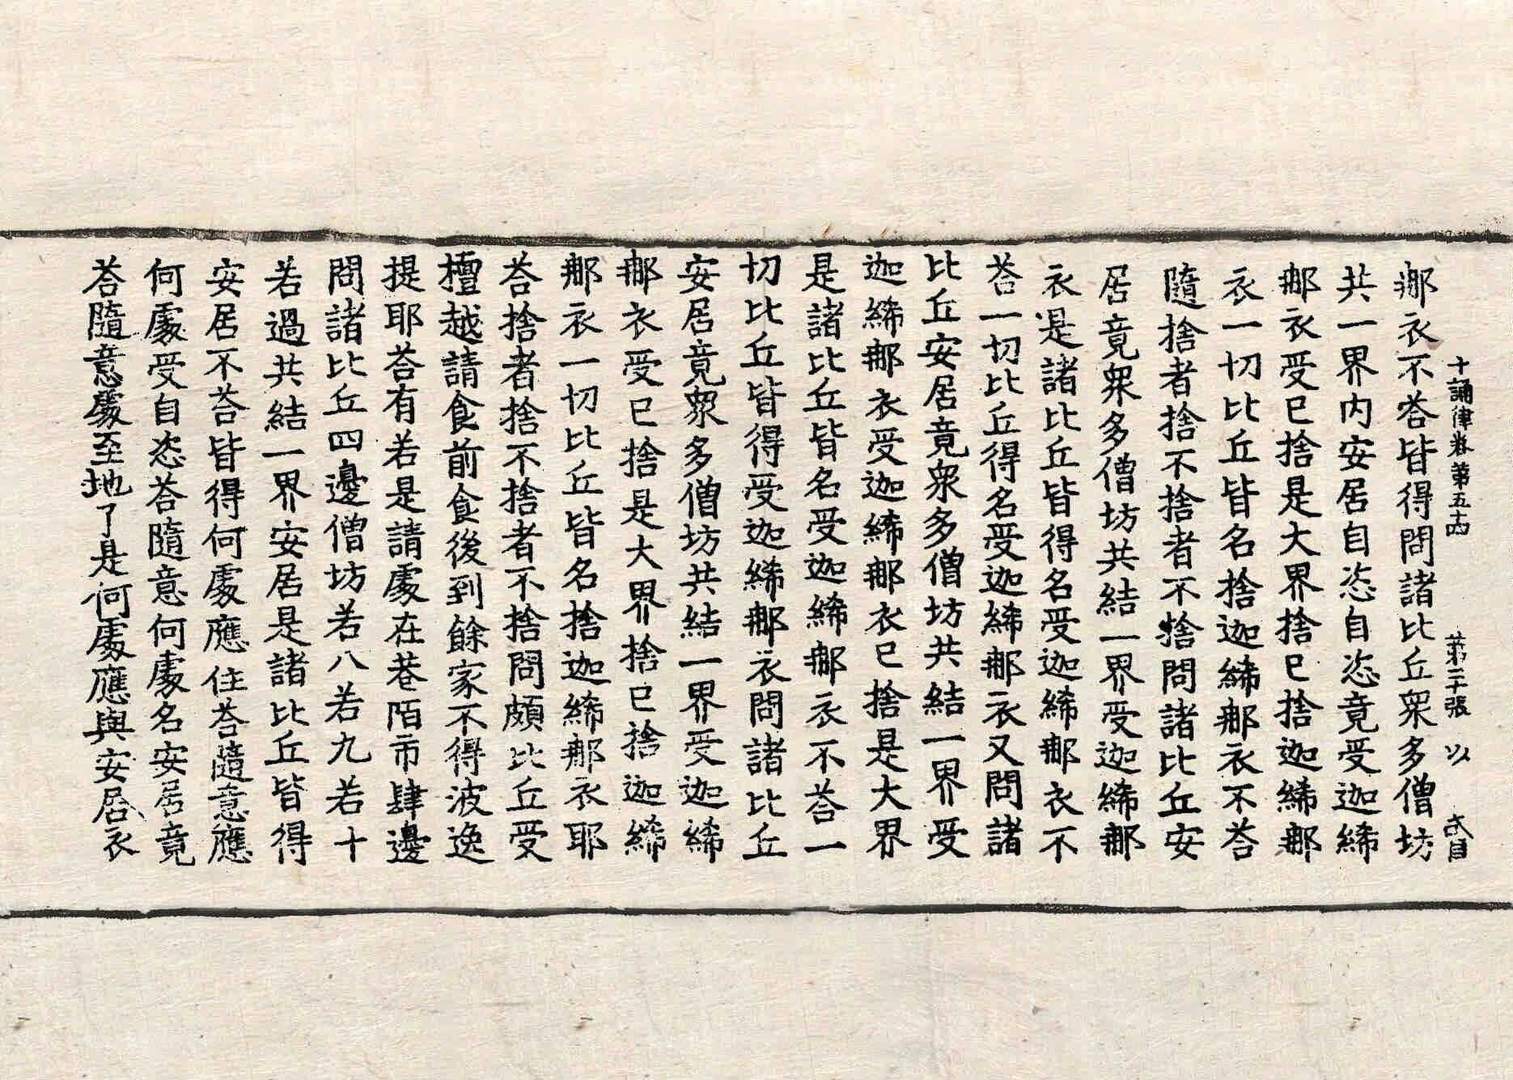 十誦律卷第五十四 第二十張 以
郍衣不荅皆得問諸比丘衆多僧坊
共一界內安居自恣自恣竟受迦絺
郍衣受已捨是大界捨已捨迦絺郍
衣一切比丘皆名捨迦絺郍衣不荅
隨捨者捨不捨者不捨問諸比丘安
居竟衆多僧坊共結一界受迦絺郍
衣是諸比丘皆得名受迦絺郍衣不
荅一切比丘得名受迦絺郍衣又問諸
比丘安居竟衆多僧坊共結一界受
迦絺郍衣受迦絺郍衣已捨是大界
是諸比丘皆名受迦絺郍衣不荅一
切比丘皆得受迦絺郍衣問諸比丘
安居竟衆多僧坊共結一界受迦絺
郍衣受已捨是大界捨已捨迦絺
郍衣一切比丘皆名捨迦絺郍衣耶
荅捨者捨不捨者不捨問頗比丘受
檀越請食前食後到餘家不得波逸
提耶荅有若是請處在巷陌市肆邊
問諸比丘四邊僧坊若八若九若十
若過共結一界安居是諸比丘皆得
安居不荅皆得何處應住荅隨意應
何處受自恣荅隨意何處名安居竟
荅隨意處至地了是何處應與安居衣